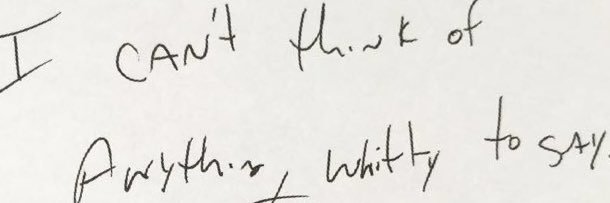 I CAN't think of
Anything whitty to SAY.